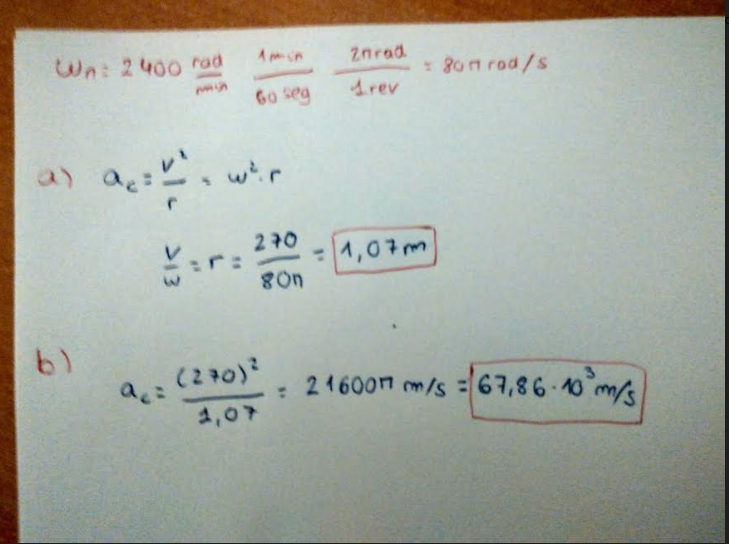 ωn = 2400 rad/min 1min/60 seg 2πrad/1rev = 80π rad/s
a) ac = v²/r = w²·r
v/w = r = 270/80π = 1,07m
b) ac = (270)²/1,07 = 21600π m/s = 67,86·10³ m/s